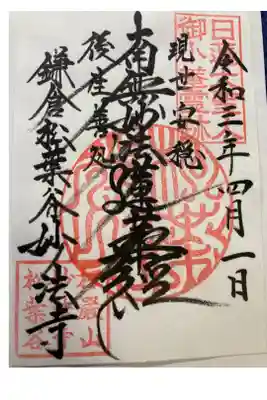 令和三年四月一日
現世安穏
南無妙法蓮華經
後生善処
鎌倉松葉谷妙法寺
日蓮聖人
松葉谷